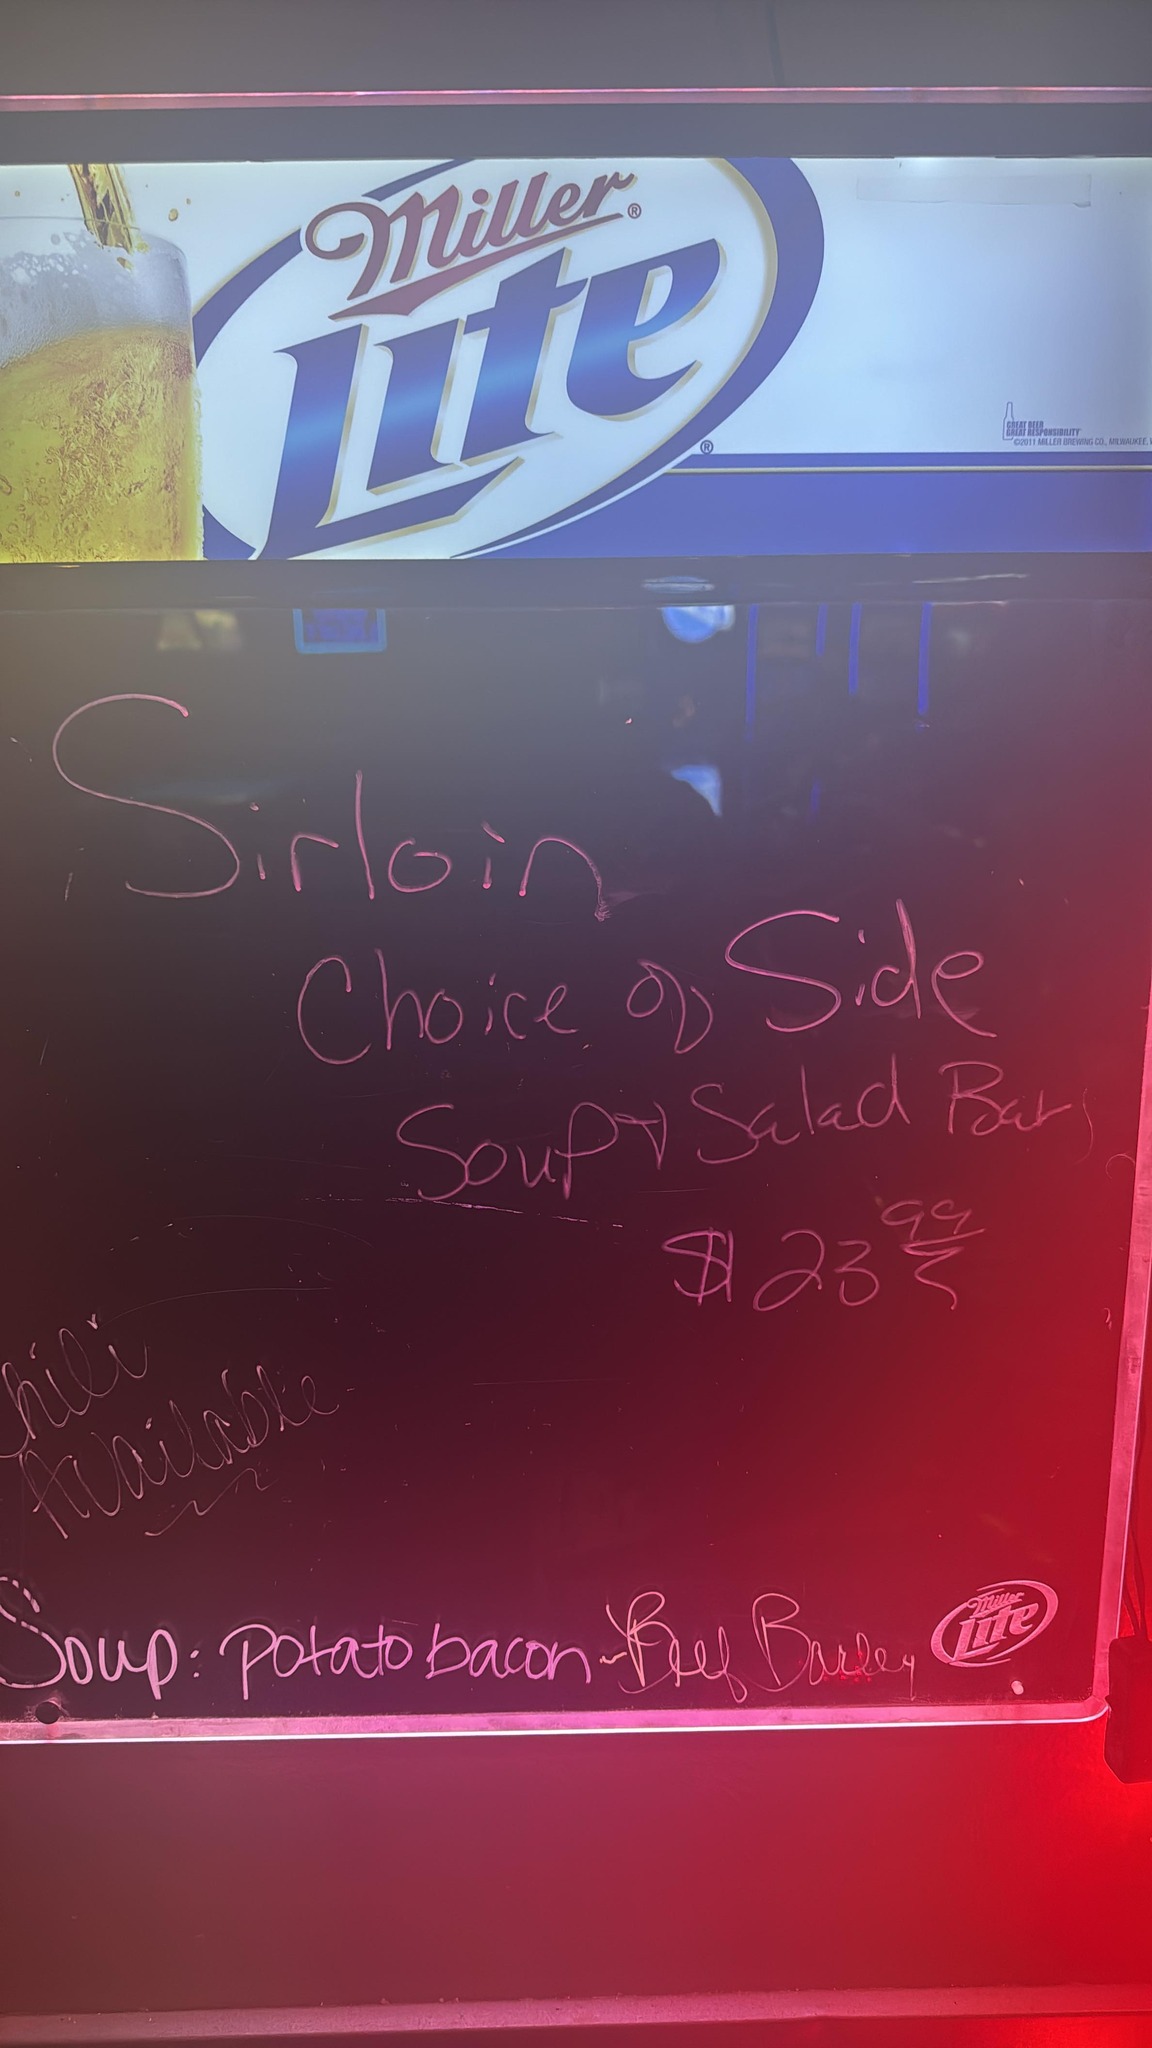 Miller®
Lite®
GREAT BEER
GREAT RESPONSIBILITY
©2011 MILLER BREWING CO., MILWAUKEE,
Sirloin
Choice of Side
Soup & Salad Bar
$23 99
hili
Available
Soup: potato bacon - Beef Barley
Miller
Lite